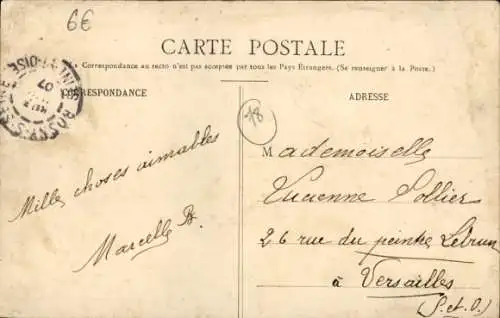 6€
CARTE POSTALE
La Correspondance au recto n'est pas acceptée par tous les Pays Étrangers. (Se renseigner à la Poste.)
CORRESPONDANCE
ADRESSE
78
Mille choses aimables
Marcelle B.
Mademoiselle
Lucienne Pollier
26 rue du peintre Lebrun
à Versailles
(S.-et-O.)
ROSNY-S-SEINE
07